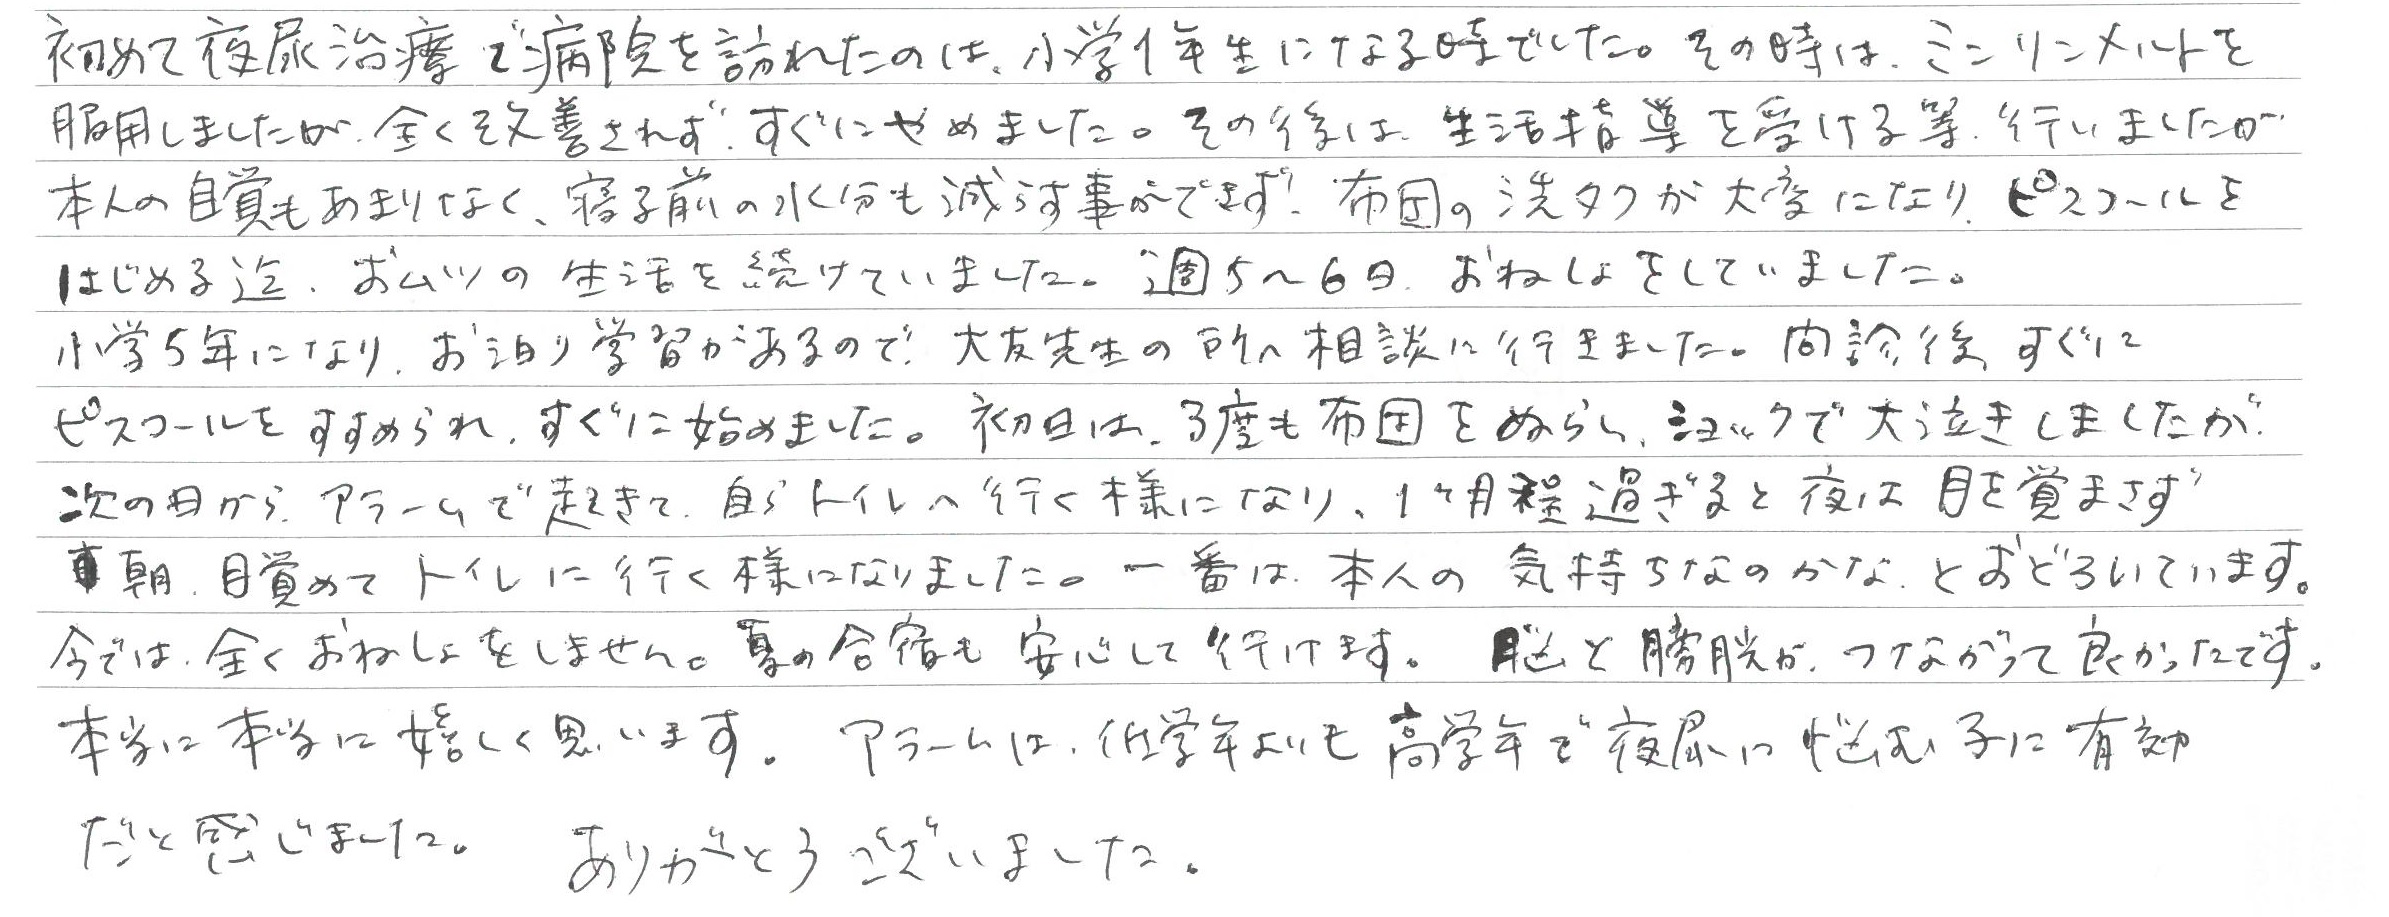 初めて夜尿治療で病院を訪れたのは、小学1年生になる時でした。その時は、ミニリンメルトを
服用しましたが、全く改善されず、すぐにやめました。その後は、生活指導を受ける等、行いましたが
本人の自覚もあまりなく、寝る前の水分も減らす事ができず、布団の洗タクが大変になり、ピスコールを
はじめる迄、オムツの生活を続けていました。週5〜6日、おねしょをしていました。
小学5年になり、お泊り学習があるので、大友先生の所へ相談に行きました。問診後、すぐに
ピスコールをすすめられ、すぐに始めました。初日は、3度も布団をぬらし、ショックで大泣きしましたが、
次の日から、アラームで起きて、自らトイレへ行く様になり、1ヶ月程過ぎると夜は目を覚まさず
朝、目覚めてトイレに行く様になりました。一番は、本人の気持ちなのかな、とおどろいています。
今では、全くおねしょをしません。夏の合宿も安心して行けます。脳と膀胱が、つながって良かったです。
本当に本当に嬉しく思います。アラームは、低学年よりも高学年で夜尿に悩む子に有効
だと感じました。ありがとうございました。